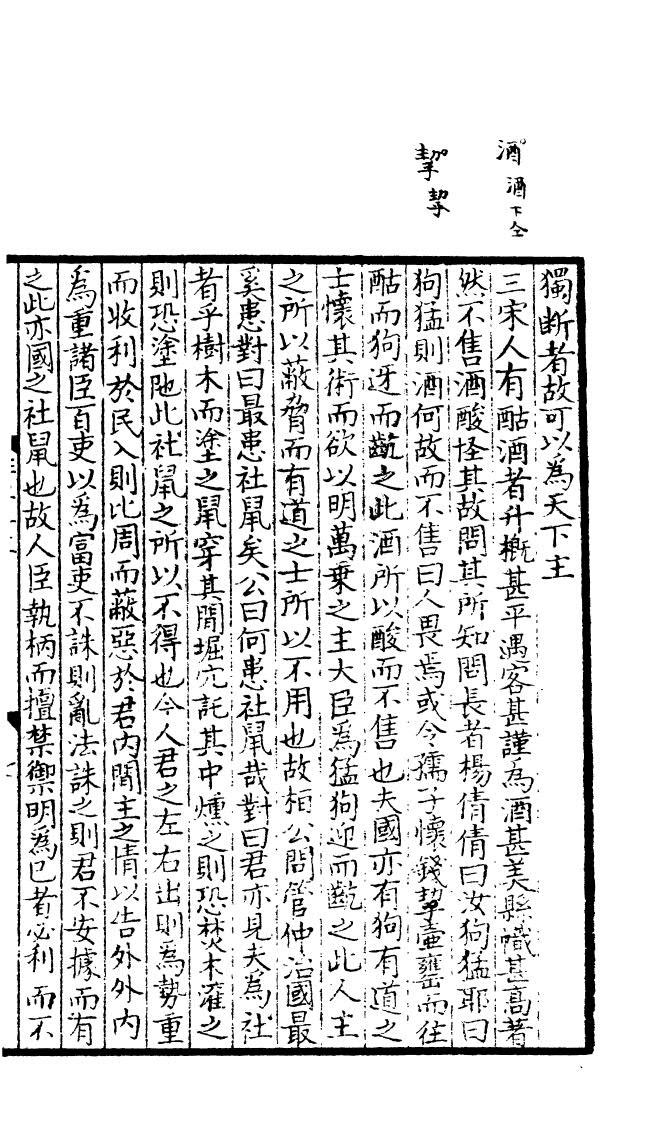 酒 酒下仝
挈 挈
獨斷者故可以為天下主
三宋人有酤酒者升槪甚平遇客甚謹為酒甚美縣幟甚高著
然不售酒酸怪其故問其所知問長者楊倩倩曰汝狗猛耶曰
狗猛則酒何故而不售曰人畏焉或令孺子懷錢挈壺罋而往
酤而狗迓而齕之此酒所以酸而不售也夫國亦有狗有道之
士懷其術而欲以明萬乗之主大臣為猛狗迎而齕之此人主
之所以蔽脅而有道之士所以不用也故桓公問管仲治國最
奚患對曰最患社鼠矣公曰何患社鼠哉對曰君亦見夫為社
者乎樹木而塗之鼠穿其間堀穴託其中燻之則恐焚木灌之
則恐塗阤此社鼠之所以不得也今人君之左右出則為勢重
而收利於民入則比周而蔽惡於君内間主之情以告外外内
為重諸臣百吏以為富吏不誅則亂法誅之則君不安據而有
之此亦國之社鼠也故人臣執柄而擅禁禦明為已者必利而不